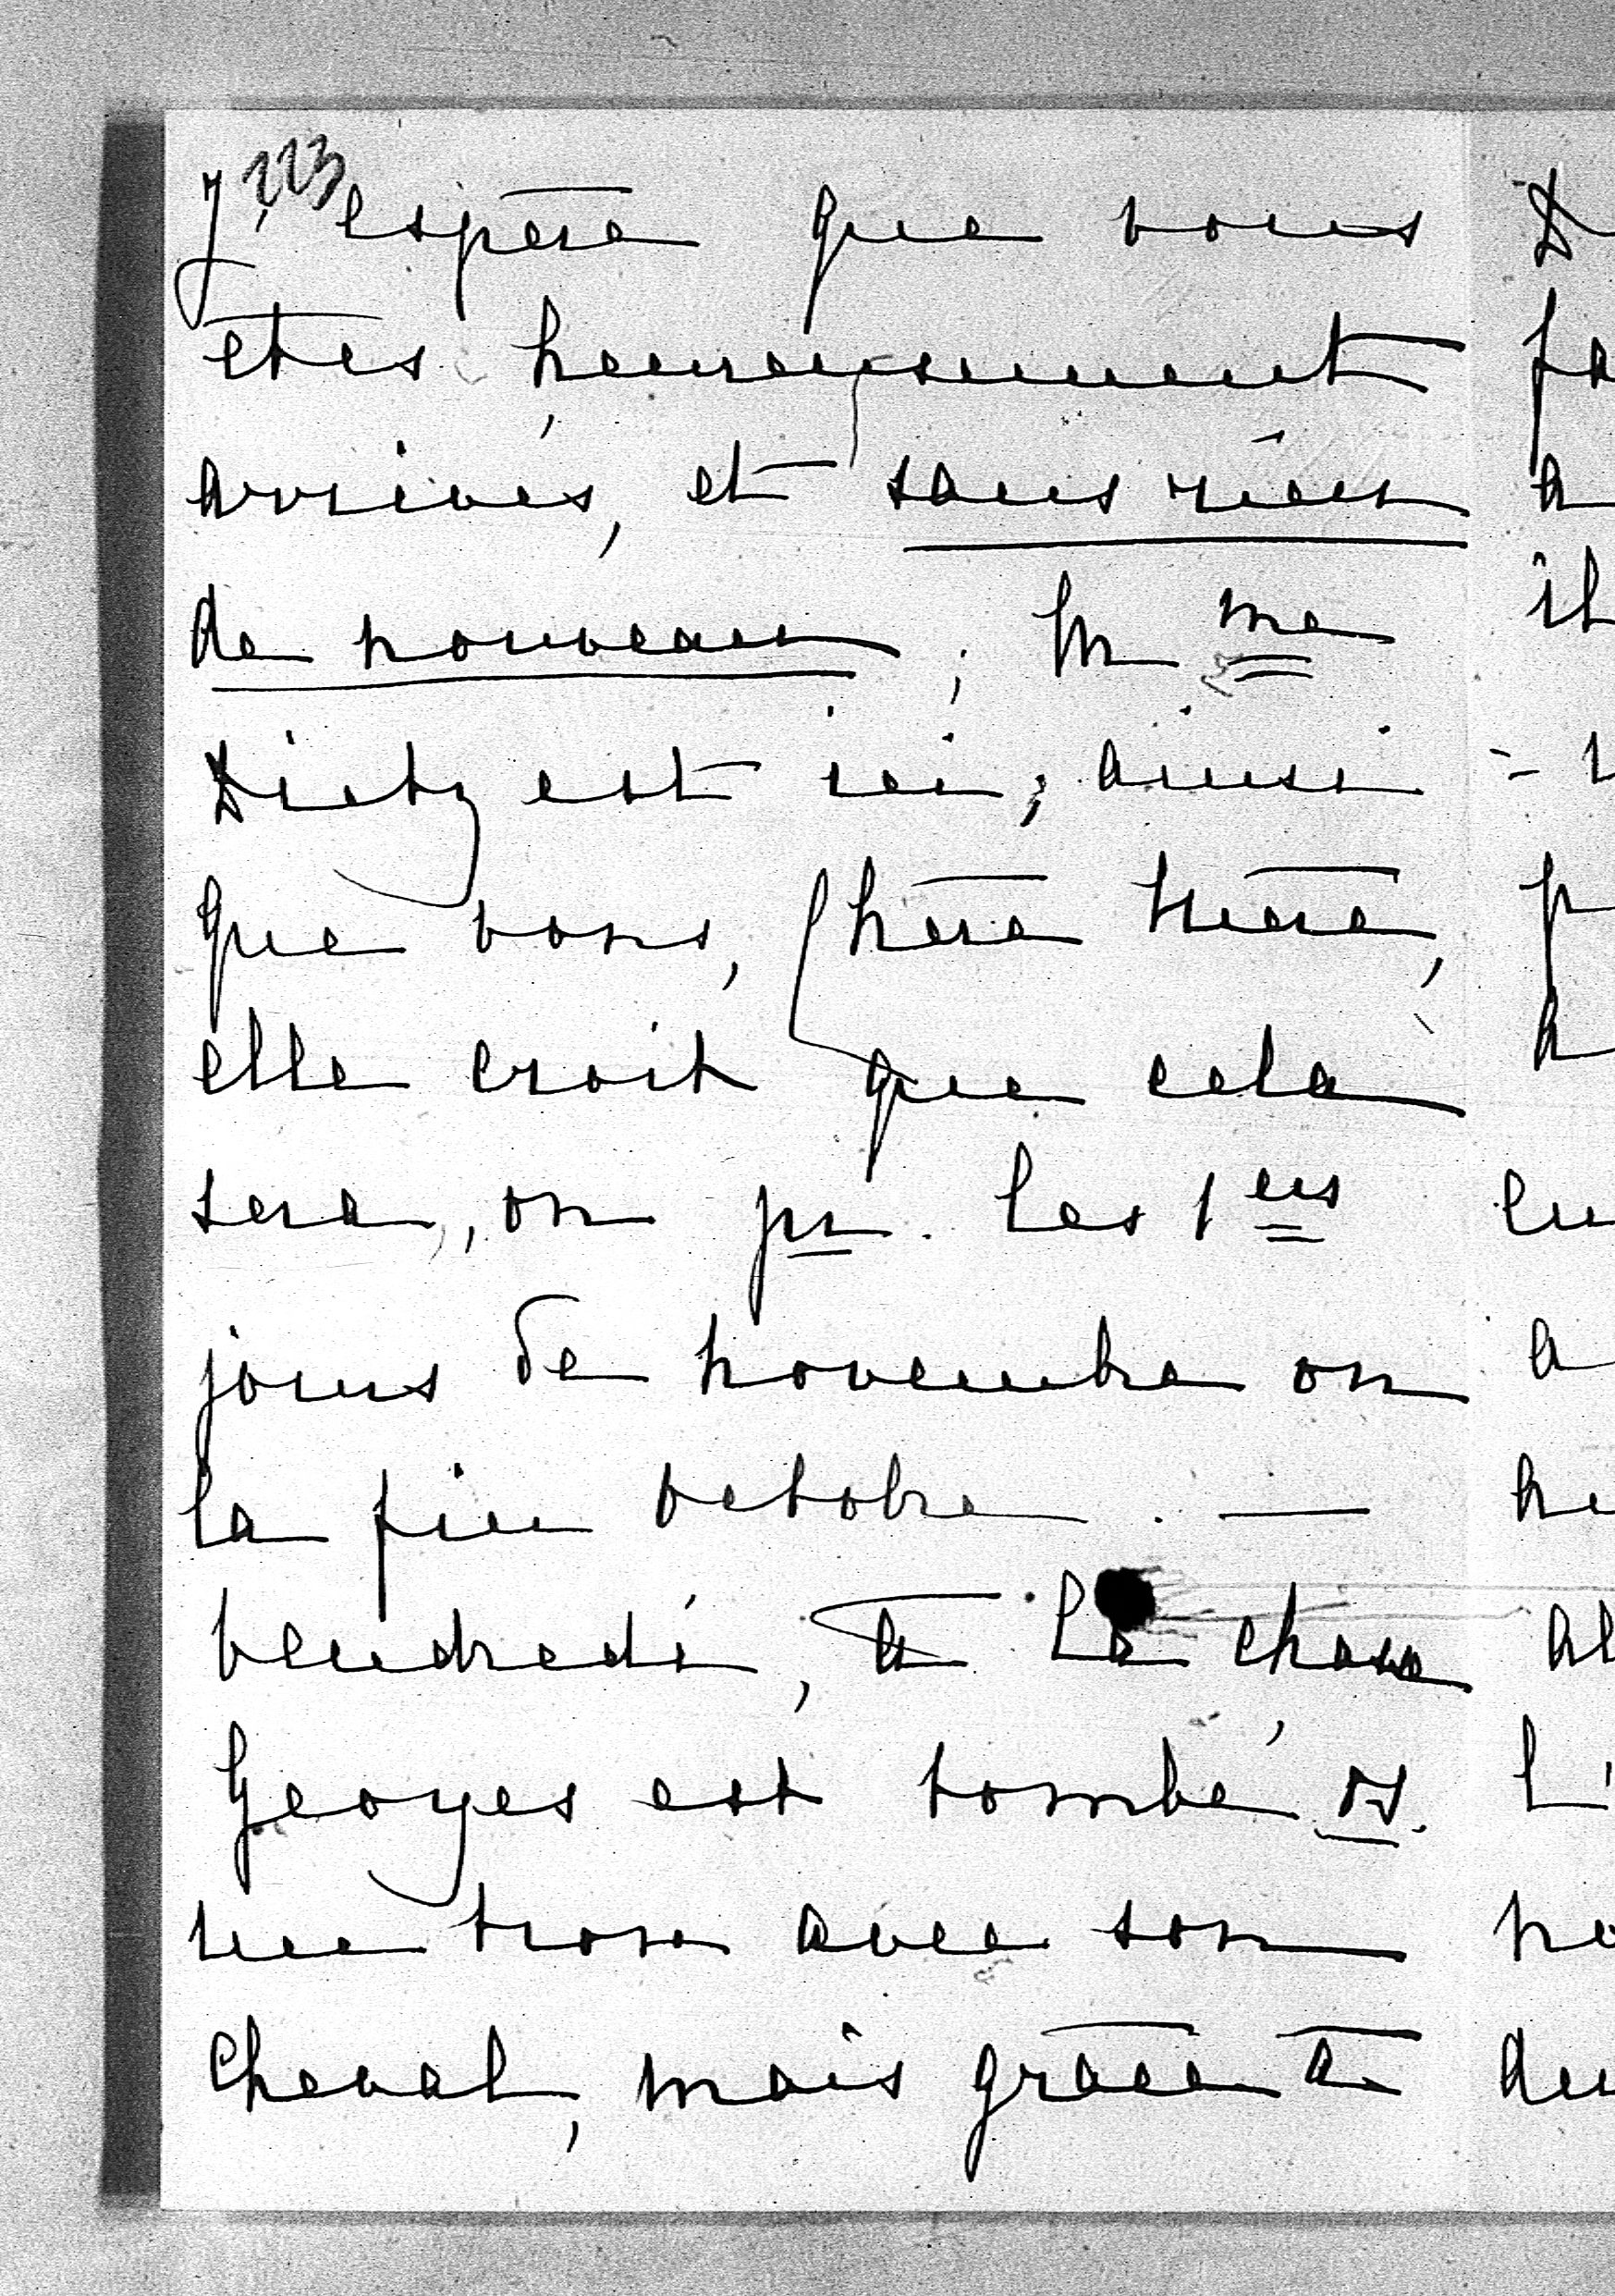 223
J'espère que vous
êtes heureusement
arrivés, et sans rien
de nouveau; Mme
Dietz est ici, ainsi
que vous, chère
elle croit que cela
sera, ou pr. les 1ers
jours de novembre ou
la fin octobre. —
Vendredi, à la chasse
Georges est tombé ds.
une trou avec son
cheval, mais grâce à